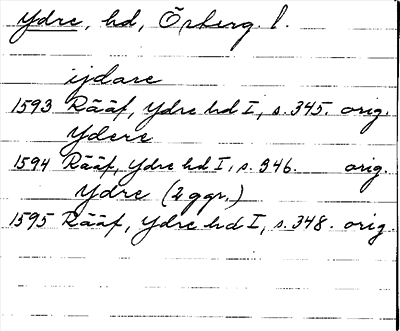 Ydre, hd, Ö
ijdare
1593 Rääf, Ydre hd I, s. 345. orig.
Ydere
1594 Rääf, Ydre hd I, s. 346. orig.
Ydre (2 ggr.)
1595 Rääf, Ydre hd I, s. 348. orig.